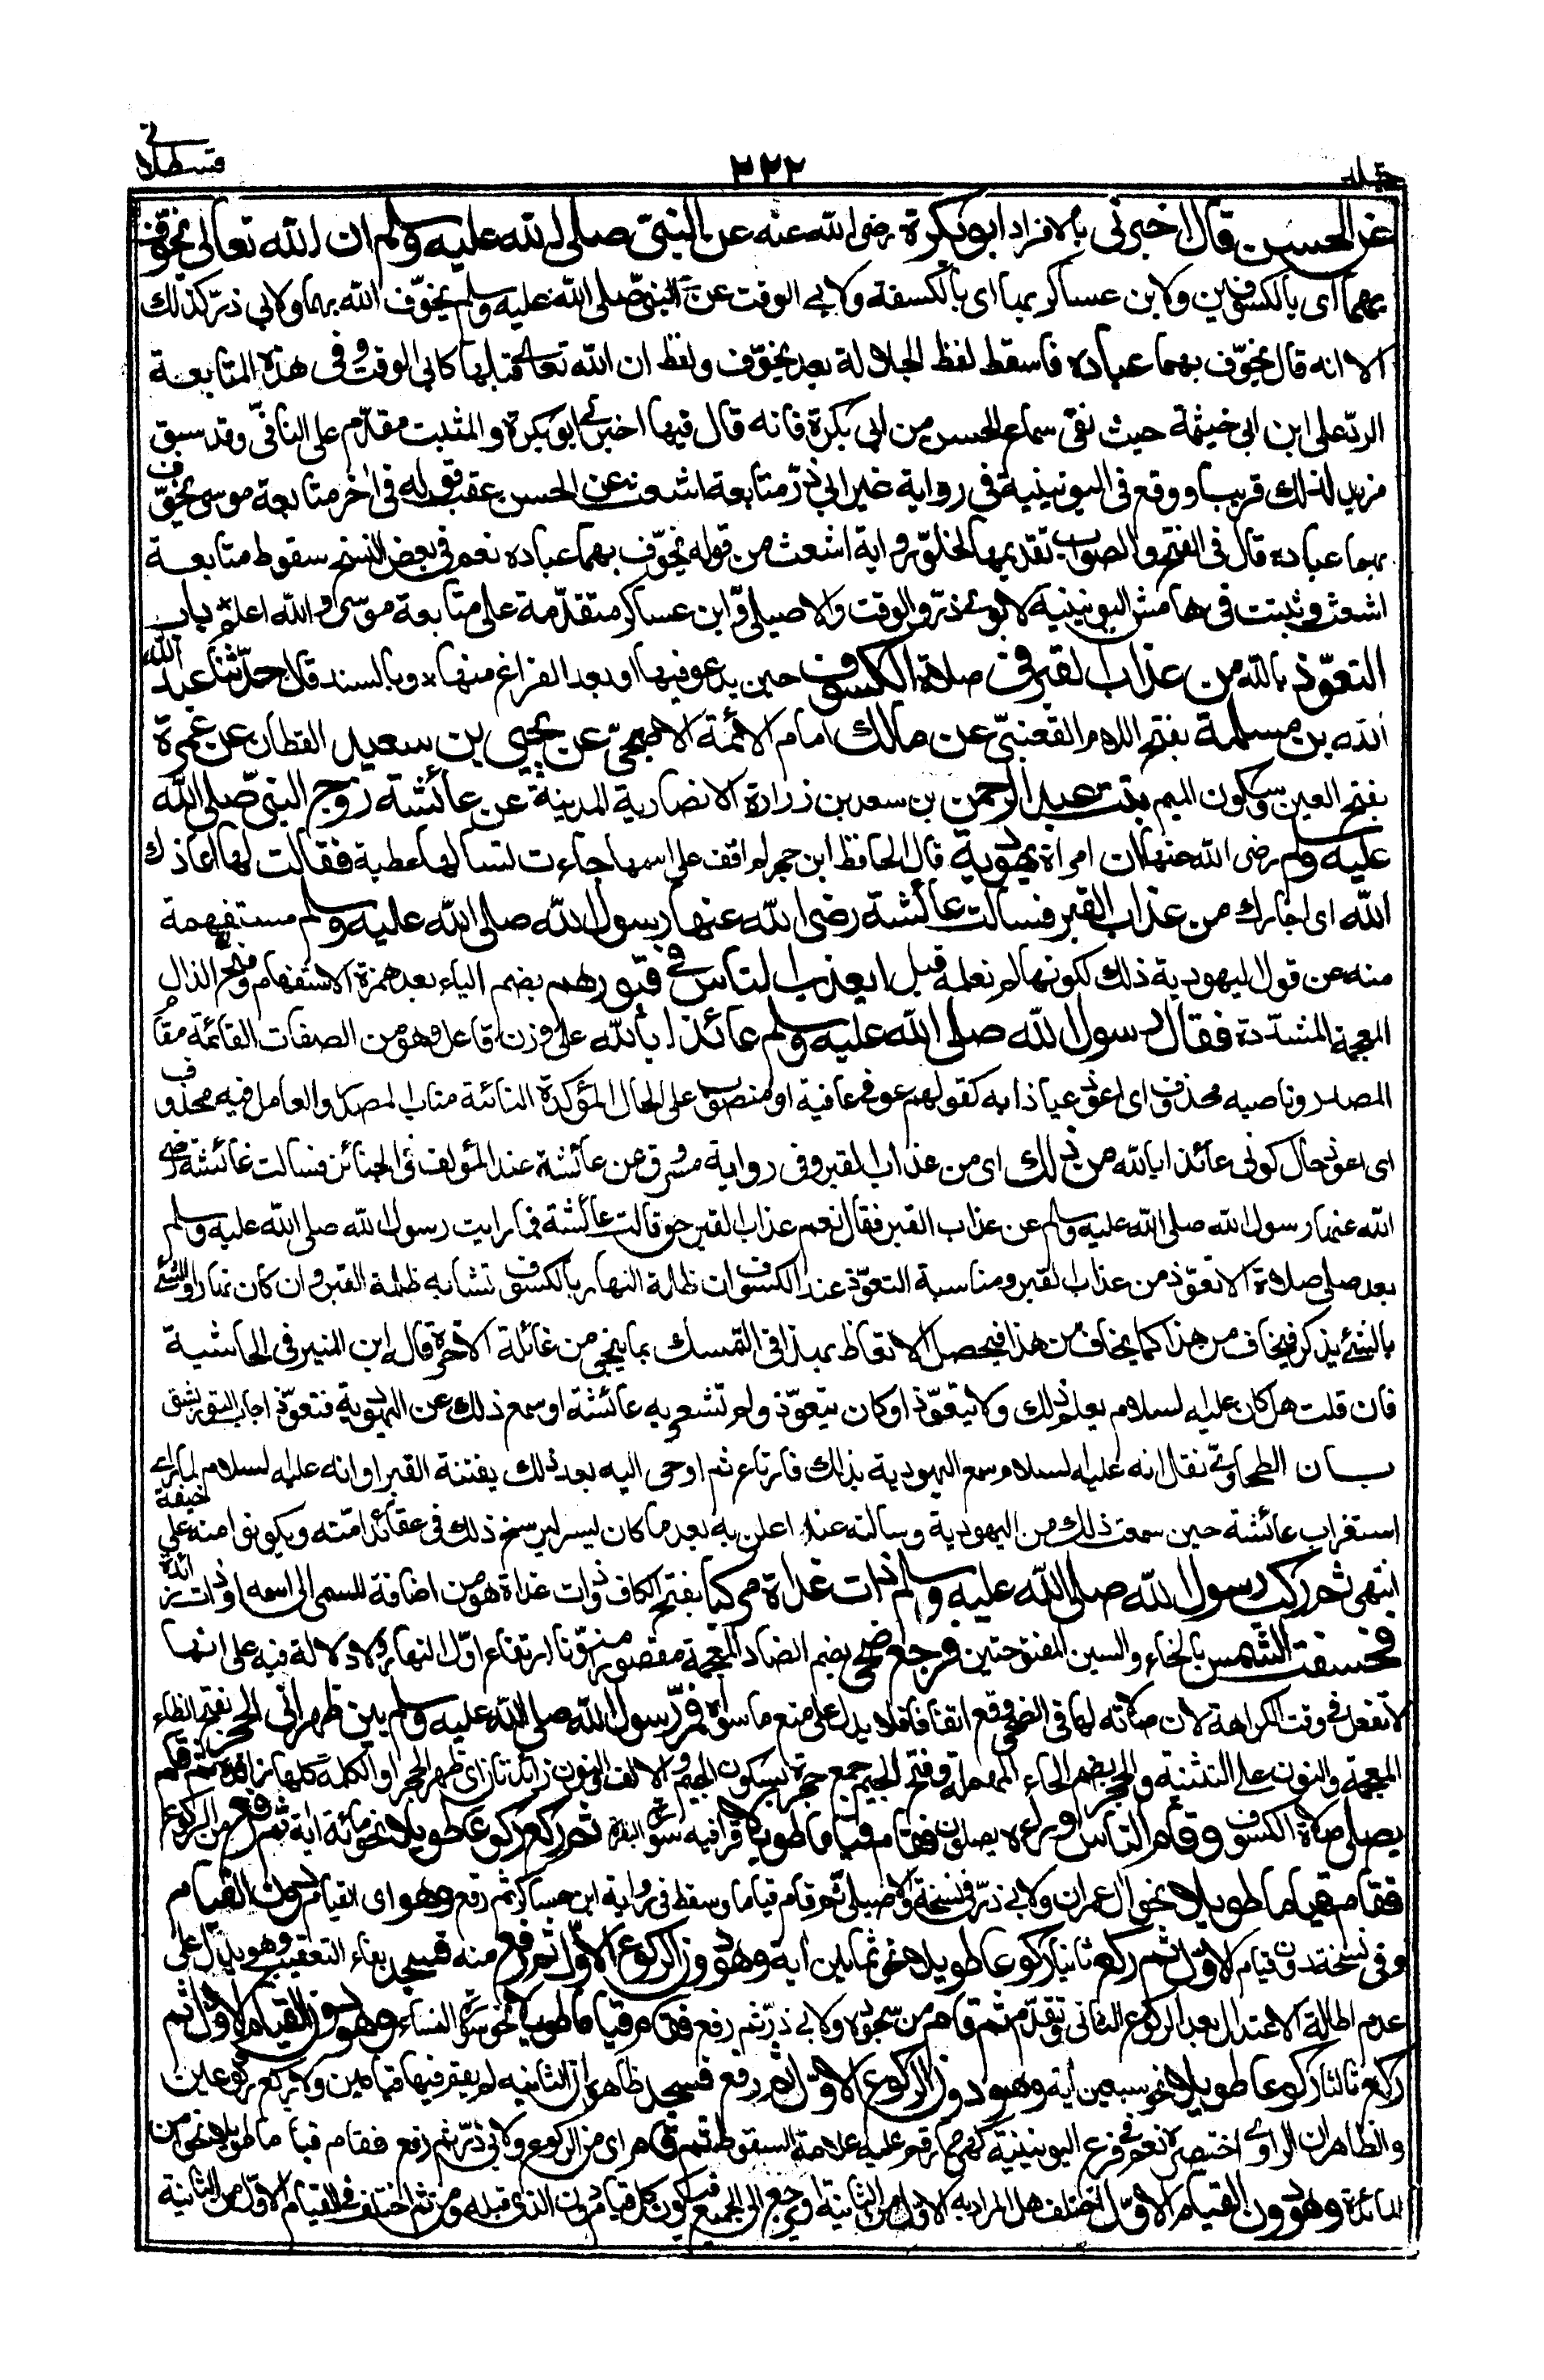 قسطلاني
٣٢٢
جلد
عن الحسن قال اخبرني بالافراد ابو بكرة رضي الله عنه عن النبي صلى الله عليه وسلم ان الله تعالى يخوّف
بهما اى بالكسوفين ولابن عساكر بها اى بالكسفة ولابي الوقت عن النبيّ صلى الله عليه وسلم يخوّف الله بهما ولابي ذرّ كذلك
الا انه قال يخوّف بهما عباده فاسقط لفظ الجلالة بعد يخوّف ولفظ ان الله تعالى قبلها كابي الوقت وفى هذه المتابعة
الردّ على ابن ابي خيثمة حيث نفى سماع الحسن من ابي بكرة فانه قال فيها اخبرني ابو بكرة والمثبت مقدّم على النافي وقد سبق
مزيد لذلك قريبا ووقع فى اليونينية فى رواية غير ابي ذرّ متابعة اشعث عن الحسن عقب قوله فى اخر متابعة موسى يخوّف
بهما عباده قال فى الفتح والصواب تقديمها لخلوّ رواية اشعث من قوله يخوّف بهما عباده نعم فى بعض النسخ سقوط متابعة
اشعث وثبتت فى هامش اليونينية لابوى ذرّ والوقت والاصيلي وابن عساكر متقدّمة على متابعة موسى والله اعلم * باب
التعوّذ بالله من عذاب القبر فى صلاة الكسوف حين يدعو فيها او بعد الفراغ منها * وبالسند قال حدّثنا عبد الله
الله بن مسلمة بفتح اللام القعنبيّ عن مالك امام الائمة الاصبحيّ عن يحيى بن سعيد القطان عن عمرة
بفتح العين وسكون الميم بنت عبد الرحمن بن سعد بن زرارة الانصارية المدنية عن عائشة زوج النبيّ صلى الله
عليه وسلم رضى الله عنها ان امراة يهودية قال الحافظ ابن حجر لم اقف على اسمها جاءت تسالها عطية فقالت لها اعاذك
الله اى اجارك من عذاب القبر فسالت عائشة رضى الله عنها رسول الله صلى الله عليه وسلم مستفهمة
منه عن قول اليهودية ذلك لكونها لم تعلمه قبل ايعذب الناس فى قبورهم بضم الياء بعد همزة الاستفهام وفتح الذال
المعجمة المشدّدة فقال رسول الله صلى الله عليه وسلم عائذا بالله على وزن فاعل وهو من الصفات القائمة مقام
المصدر وناصبه محذوف اى اعوذ عياذا به كقولهم عوفى عافية او منصوب على الحال المؤكدة النائبة مناب المصدر والعامل فيه محذوف
اى اعوذ حال كوني عائذا بالله من ذلك اى من عذاب القبر وفى رواية مسروق عن عائشة عند المؤلف فى الجنائز فسالت عائشة رضى
الله عنها رسول الله صلى الله عليه وسلم عن عذاب القبر فقال نعم عذاب القبر حق قالت عائشة فما رايت رسول الله صلى الله عليه وسلم
بعد صلى صلاة الا تعوّذ من عذاب القبر ومناسبة التعوّذ عند الكسوف ان ظلمة النهار بالكسوف تشابه ظلمة القبر وان كان نهارا والشئ
بالشئ يذكر فيخاف من هذا كما يخاف من هذا فيحصل الاتعاظ بهذا فى التمسك بما ينجي من غائلة الاخرة قاله ابن المنير فى الحاشية
فان قلت هل كان عليه السلام يعلم ذلك ولا يتعوّذ او كان يتعوّذ ولم تشعر به عائشة او سمع ذلك عن اليهودية فتعوّذ اجاب التوربشتي
بان الطحاوي نقل انه عليه السلام سمع اليهودية بذلك فارتاع ثم اوحى اليه بعد ذلك بفتنة القبر او انه عليه السلام لما راى
استغراب عائشة حين سمعت ذلك من اليهودية وسالته عنه اعلن به بعد ما كان يسر ليرسخ ذلك فى عقائد امّته ويكونوا منه على خيفة
انتهى ثم ركب رسول الله صلى الله عليه وسلم ذات غداة مركبا بفتح الكاف وذات غداة هو من اضافة المسمى الى اسمه او ذات زائدة
فخسفت الشمس بالخاء والسين المفتوحتين فرجع ضحى بضم الضاد المعجمة مقصور منوّنا ارتفاع اوّل النهار ولا دلالة فيه على انها
لا تفعل فى وقت الكراهة لان صلاته لها فى الضحى وقع اتفاقا فلا يدل على منع ما سواه فمرّ رسول الله صلى الله عليه وسلم بين ظهراني الحجر بفتح الظاء
المعجمة والنون على التثنية والحجر بضم الحاء المهملة وفتح الجيم جمع حجرة بسكون الجيم والالف والنون زائدتان اى ظهر الحجر او الكلمة كلها زائدة ثم قام
يصلى صلاة الكسوف وقام الناس وراءه يصلون فقام قياما طويلا قرا فيه سورة البقرة ثم ركع ركوعا طويلا نحو مائة اية ثم رفع من الركوع
فقام قياما طويلا نحو ال عمران ولابي ذرّ فى نسخة والاصيلي ثم قام قياما وسقط فى رواية ابن عساكر ثم رفع وهو اى القيام دون القيام
وفى نسخة دون قيام الاوّل ثم ركع ثانيا ركوعا طويلا نحو ثمانين اية وهو دون الركوع الاوّل ثم رفع منه فسجد بفاء التعقيب وهو يدل على
عدم اطالة الاعتدال بعد الركوع الثاني وتقدّم ثم قام من سجوده ولابي ذرّ ثم رفع فقام قياما طويلا نحو سورة النساء وهو دون القيام الاوّل ثم
ركع ثالثا ركوعا طويلا نحو سبعين اية وهو دون الركوع الاوّل ثم رفع فسجد ظاهره ان الثانيه لم يقم فيها قيامين ولا ركع ركوعين
والظاهر ان الراوى اختصره نعم فى فرع اليونينية كهي مما رقم عليه علامة السقوط ثم قام اى من الركوع ولابي ذرّ ثم رفع فقام قياما طويلا نحوا من
المائدة وهو دون القيام الاوّل اختلف هل المراد به الاوّل من الثانية او يرجع الى الجميع فيكون كل قيام دون الذى قبله ومن ثم اختلف فى القيام الاوّل من الثانية